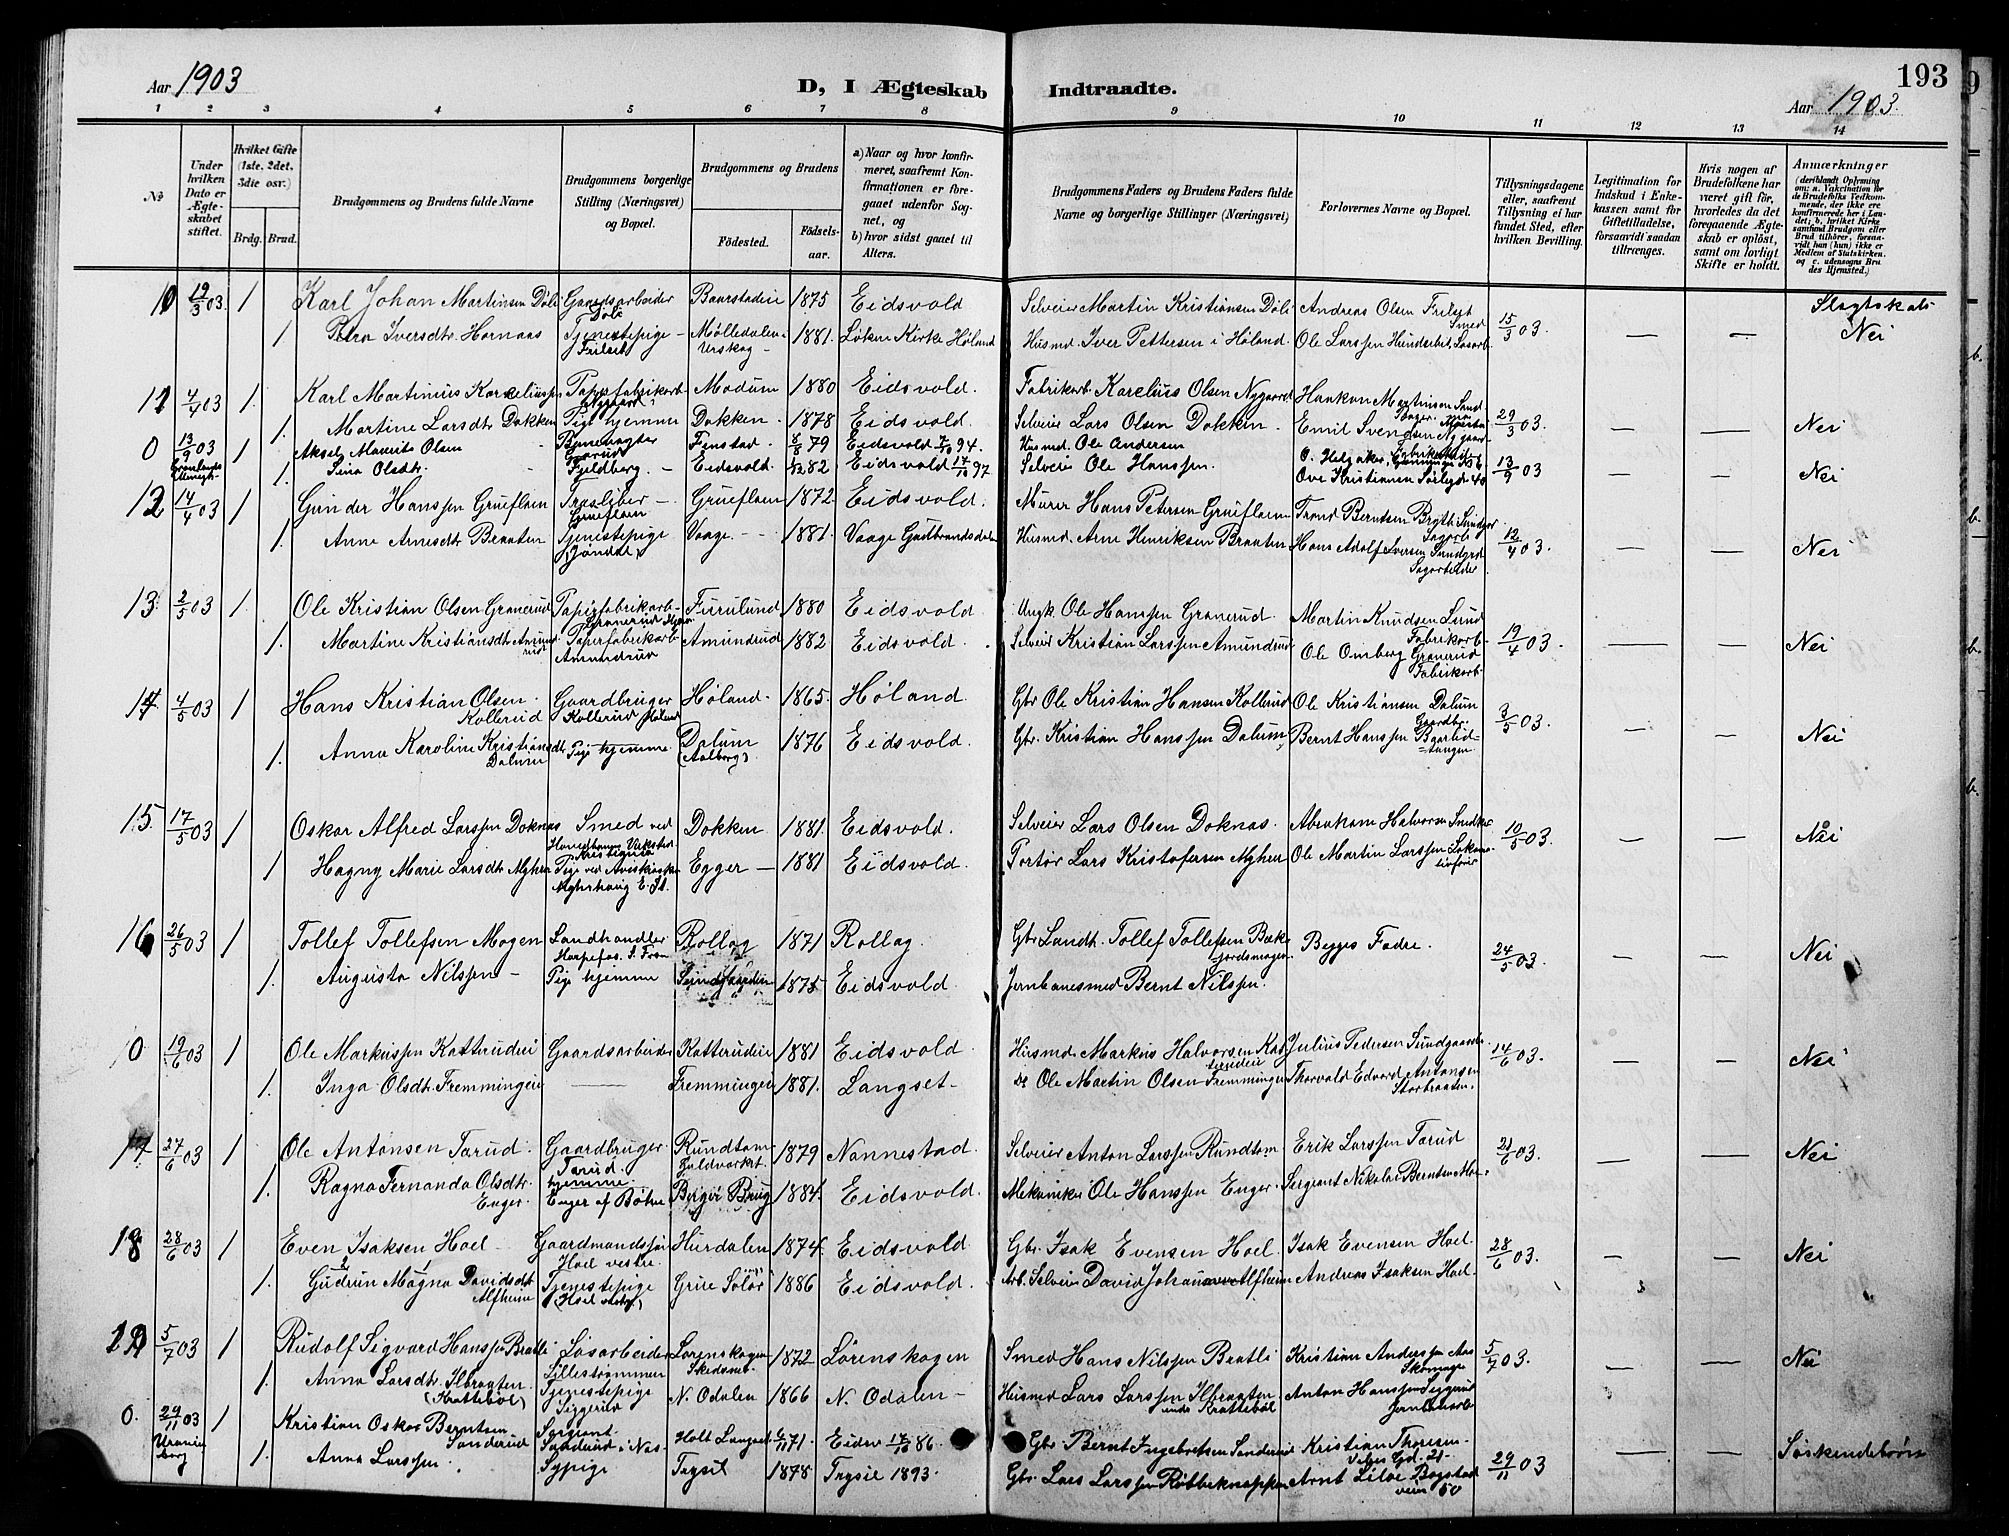 193
Aar 1903
D, I Ægteskab Indtraadte.
Aar 1903.
1 2 3 4 5 6 7 8 9 10 11 12 13 14
No
Under hvilken Dato er Ægteskabet stiftet.
Hvilket Gifte (1ste, 2det, 3die osv.)
Brdg. Brud.
Brudgommens og Brudens fulde Navne
Brudgommens borgerlige Stilling (Næringsvei) og Bopæl.
Brudgommens og Brudens
Fødested.
Fødsels-aar.
a) Naar og hvor konfirmeret, saafremt Konfirmationen er foregaaet udenfor Sognet, og
b) hvor sidst gaaet til Alters.
Brudgommens Faders og Brudens Faders fulde Navne og borgerlige Stillinger (Næringsvei)
Forlovernes Navne og Bopæl.
Tillysningsdagene eller, saafremt Tillysning ei har fundet Sted, efter hvilken Bevilling.
Legitimation for Indskud i Enkekassen samt for Giftetilladelse, forsaavidt saadan tiltrænges.
Hvis nogen af Brudefolkene har været gift før, hvorledes da det foregaaende Ægteskab er opløst, samt om lovligt Skifte er holdt.
Anmærkninger
(deriblandt Oplysning om: a. Vakcination for de Brudefolks Vedkommende, der ikke ere konfirmerede her i Landet; b. hvilket Kirkesamfund Brudgom eller Brud tilhører, forsaavidt han (hun) ikke er Medlem af Statskirken, og c. udensogns Brudes Hjemsted.)
10 19/3 03. 1 Karl Johan Martinsen Døli Gaardsarbeider Døli Baarstadeie 1875 Eidsvold Selveier Martin Kristiansen Døli Andreas Olsen Frilset Smed 15/3 03. — — Slegtskab Nei
1 Petra Iversdtr. Hornaas Tjenestepige Frilset Mølledalen Urskog 1881. Løken Kirke Høland Husmd. Iver Pettersen i Høland. Ole Larssen
11 4/4 03 1. Karl Martinius Kareliussen Papirfabrikarb. Modum 1880 Eidsvold. Fabrikarb. Karelius Olsen Nygaard Haakon Martinsen 29/3 03. — — Nei
1. Martine Larsdtr. Dokken Pige hjemme Dokken 1878 Eidsvold. Selveier Lars Olsen Dokken. Emil Svendsen Nygaard
0 13/9 03 1 Aksel Mauritz Olsen Banevogter Finstad. 8/8 79 Eidsvold 7/10 94. Husmd. Ole Andersen 13/9 03 — — Nei
1. Sina Olsdtr. Fjeldberg. Eidsvold. 82 Eidsvold 17/10 97 Selveier Ole Hanssen. Ove Kristiansen
12 14/4 03 1 Gunder Hanssen Grueflaen Træsliber Grueflaen Grueflaen 1872. Eidsvold. Murer Hans Petersen Grueflaen Trond Berntsen 12/4 03. — — Nei
1. Anne Arnesdtr. Braaten Tjenestepige Vaage. 1881. Vaage Gudbrandsdalen Husmd. Arne Henriksen Braaten Hans Adolf Iversen Sagarbeider
13 2/5 03 1. Ole Kristian Olsen Granerud Papirfabrikarb. Granerud Furulund 1880 Eidsvold Ungk. Ole Hanssen Granerud. Martin Knudsen Lund Fabrikarb. 19/4 03. — — Nei
1. Martine Kristiansdtr. Amundrud Papirfabrikarb. Amundrud Amundrud 1882 Eidsvold. Selveier Kristian Larssen Amundrud Ole Omberg Granerud Fabrikarb.
14 4/5 03 1 Hans Kristian Olsen Kollerud Gaardbruger Kollerud Høland Høland. 1865. Høland Gbr Ole Kristian Hansen Kollerud Ole Kristiansen Dalum Gaardbr. 3/5 03. — — Nei
1. Anna Karoline Kristiansdtr. Dalum Pige hjemme Dalum 1876 Eidsvold. Gbr. Kristian Hanssen Dalum Bernt Hanssen Baarlidtangen
15. 17/5 03 1 Oskar Alfred Larssen Doknas Smed ved Kristiania Dokken 1881. Eidsvold. Selveier Lars Olsen Doknas. Abraham Halvorsen Snedker 10/5 03. — — Nei
1 Hagny Marie Larsdtr. Myhrer Pige Egger 1881 Eidsvold. Portør Lars Kristofersen Myhrer Ole Martin Larssen Lokomotivfører
16 26/5 03 1 Tollef Tollefsen Mogen Landhandler Rollag 1871 Rollag. Gbr. Landh. Tollef Tollefsen Begges Fadre. 24/5 03. — — Nei
1. Augusta Nilssen Pige hjemme 1875 Eidsvold. Jernbanesmed Bernt Nilssen.
0 19/6 03 1 Ole Markussen Katterudeie Gaardsarbeider Katterudeie 1881 Eidsvold Husmd. Markus Halvorsen Katterudeie Julius Pedersen Sundgaarden 14/6 03. — — Nei
1. Inga Olsdtr. Fremmingeie — Fremmingeie 1881. Langset Do Ole Martin Olsen Fremmingen Thorvald Edvard Antonsen Storbraaten.
17 27/6 03 1 Ole Antonsen Tarud. Gaardbruger Tarud. Rundtom Guldværket. 1879 Nannestad. Selveier Anton Larssen Rundtom Erik Larssen Tarud 21/6 03. — — Nei
1. Ragna Fernanda Olsdtr. Enger. hjemme Enger af Bøhn Berger Brug 1884. Eidsvold. Mekaniker Ole Hanssen Enger. Sergeant Nikolai Berntsen Moe
18 28/6 03 1 Even Isaksen Hoel Gaardmandssøn Hoel vestre. Hurdalen 1874. Eidsvold Gbr. Isak Evensen Hoel. Isak Evensen Hoel. 28/6 03. — — Nei
1. Gudrun Magna Davidsdtr. Alfheim Tjenestepige Grue Solør 1886 Eidsvold. Arb. Selveier David Johansen Alfheim Andreas Isaksen Hoel.
19 5/7 03 1 Rudolf Sigvard Hanssen Bratli Løsarbeider Lillestrømmen Lørenskogen Skedsmo 1872 Lørenskogen Smed Hans Nilssen Bratli Kristian Anderssen Aas Skomager 5/7 03. — — Nei
1. Anna Larsdtr. Ilbraaten (Krattebøl) Tjenestepige Siggerud N. Odalen 1866 N. Odalen Husmd Lars Larssen Ilbraaten under Krattebøl Anton Hanssen Siggerud Jernbanearb.
0. 29/11 03 1 Kristian Oskar Berntsen Sanderud Sergeant Sanderud i Nes 6/11 71. Eidsv. 17/10 86. Gbr Bernt Ingebretsen Sanderud Kristian Thoresen 29/11 03 Søskendebørn
Uranienborg 1. Anna Larssen. Sypige Trysil 1878 Trysil 1893. Gbr. Lars Larssen Røtbeknappen Arnt Lilve Bogstadveien 50